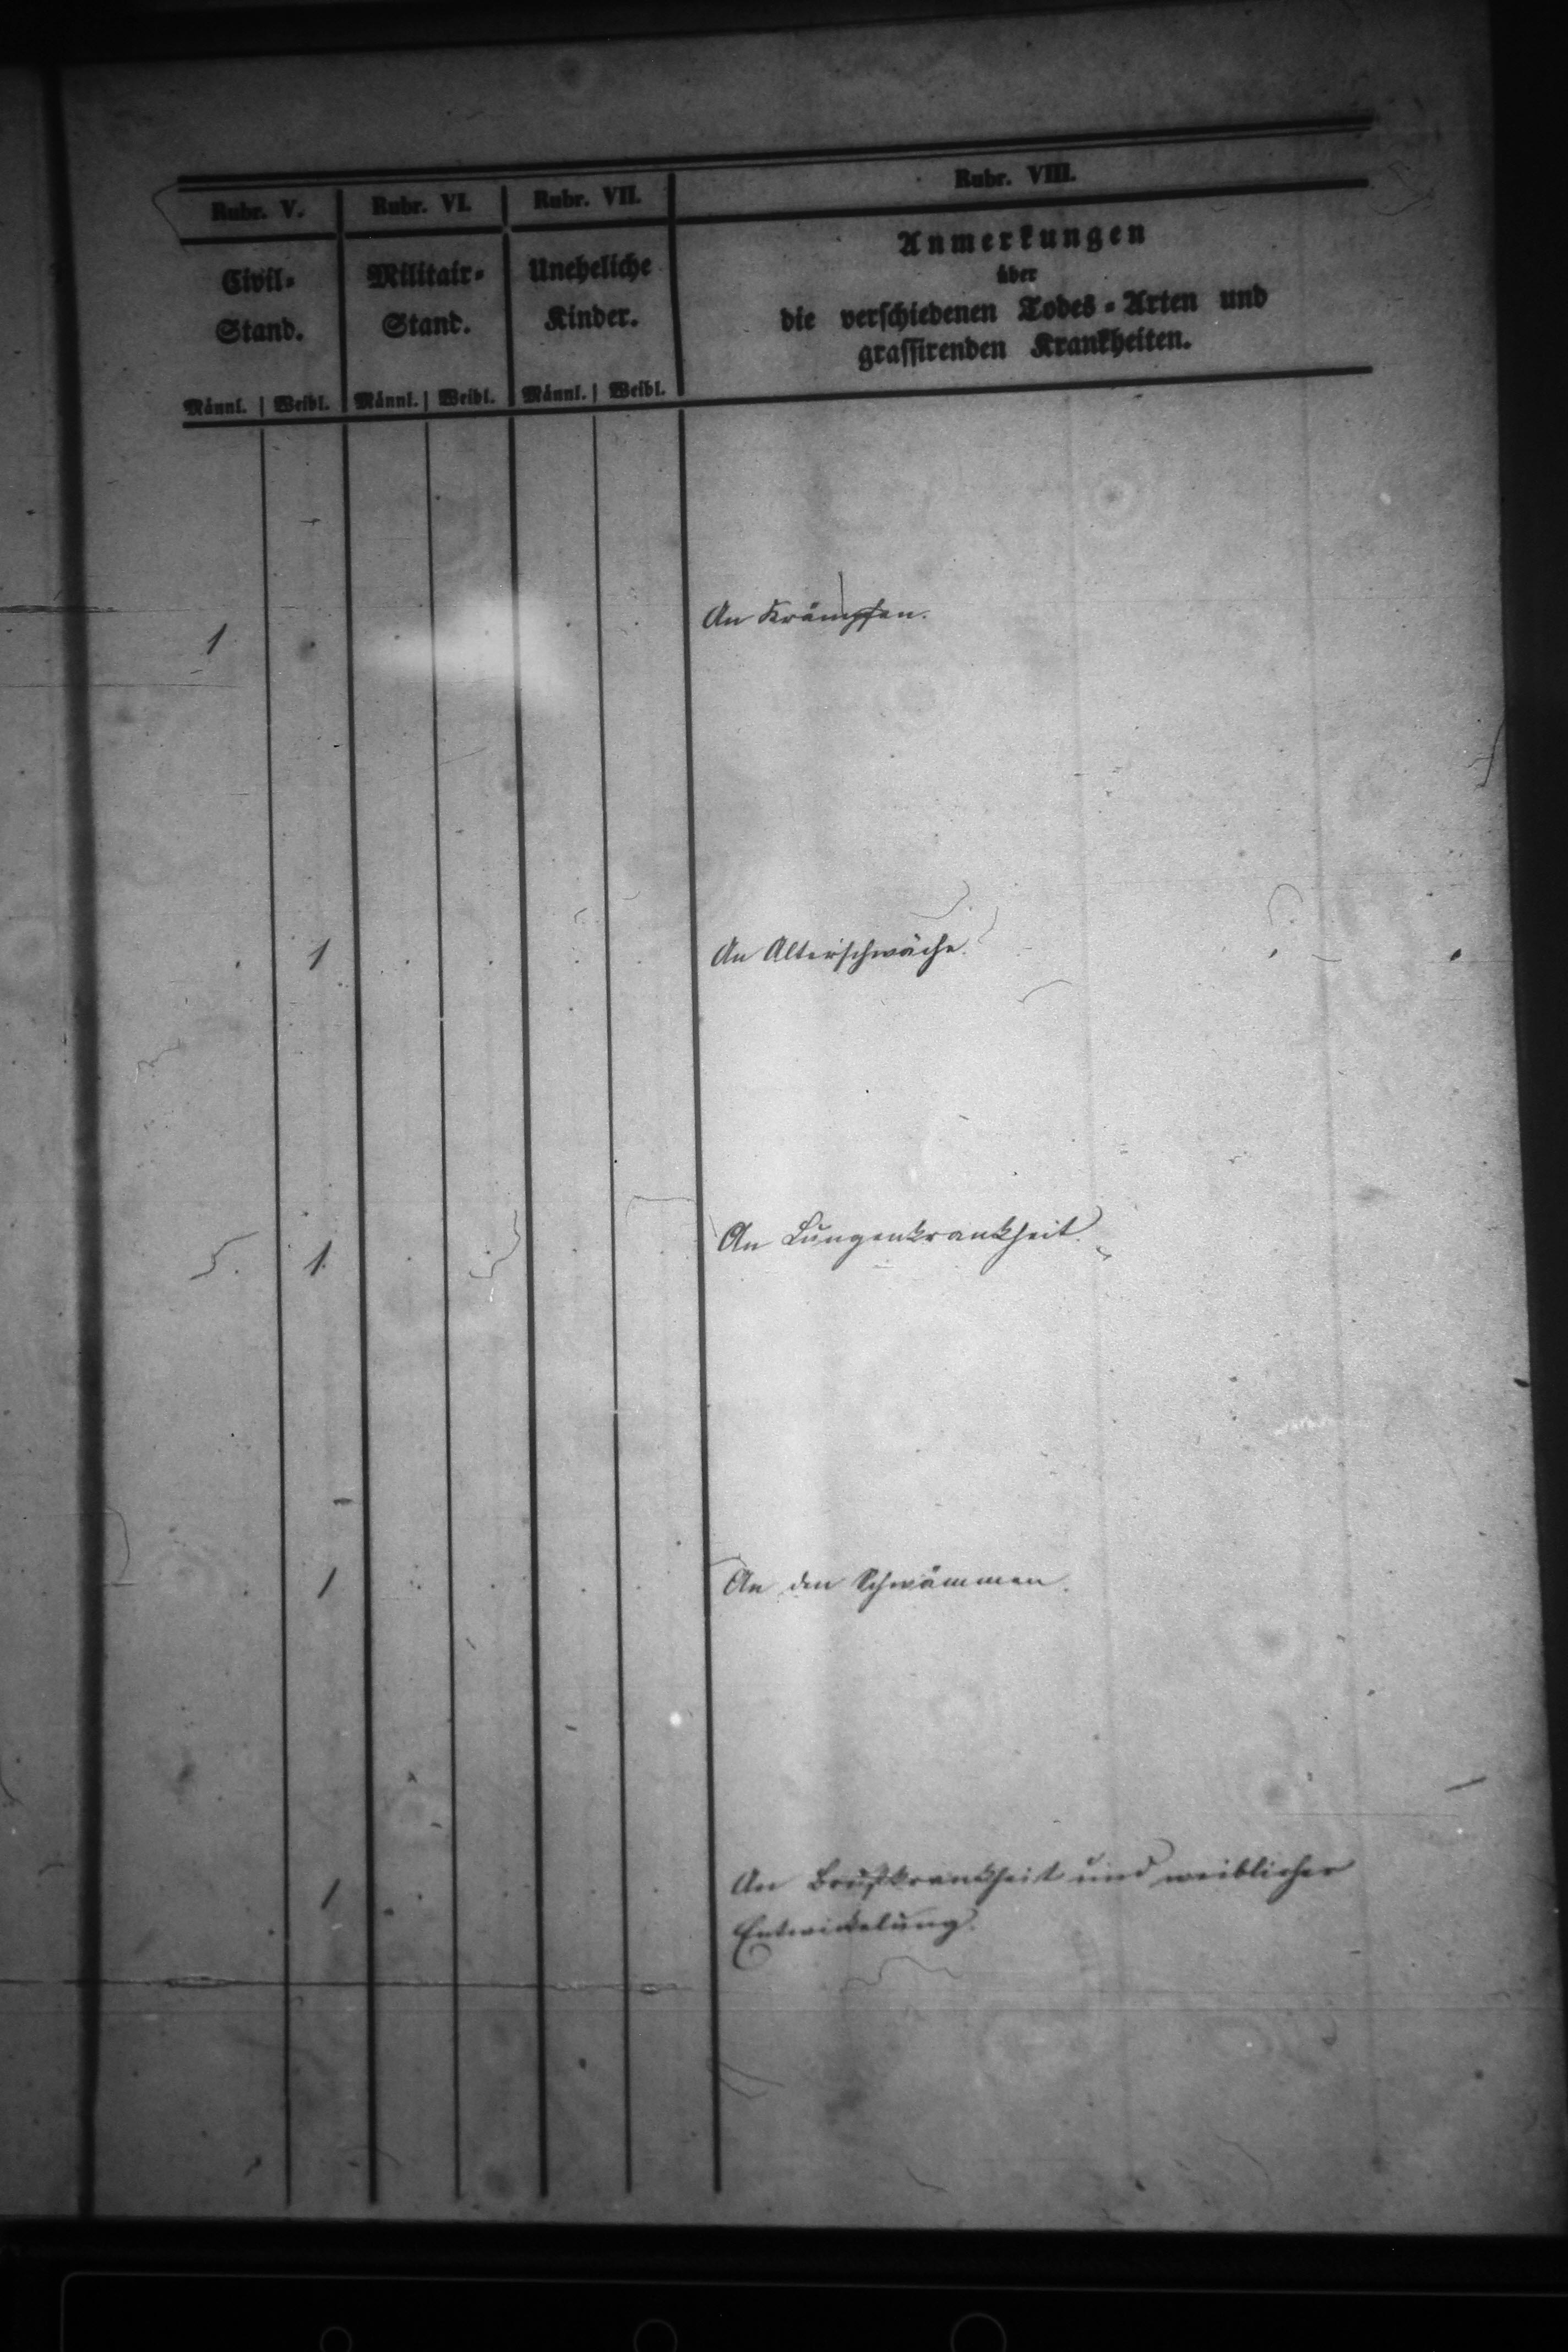 Rubr. V. Rubr. VI. Rubr. VII. Rubr. VIII.
Civil- Militair- Uneheliche Anmerkungen
Stand. Stand. Kinder. über
die verschiedenen Todes-Arten und
grassirenden Krankheiten.
Männl. Weibl. Männl. Weibl. Männl. Weibl.
1 An Krämpfen.
1 An Alterschwäche.
1 An Lungenkrankheit.
1 An den Schwämmen.
1 An Brustkrankheit und weiblicher
Entwickelung.